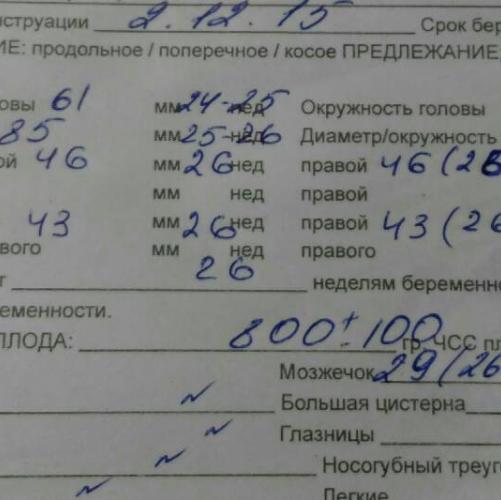 нструации 2.12.15 Срок бер
ИЕ: продольное / поперечное / косое ПРЕДЛЕЖАНИЕ
овы 61 мм 24-25 нед Окружность головы
85 мм 25-26 нед Диаметр/окружность
ой 46 мм 26 нед правой 46 (26
мм нед правой
43 мм 26 нед правой 43 (26
вого мм нед правого
т 26 неделям беременно
еменности.
ПЛОДА: 800±100 гр. ЧСС пл
Мозжечок 29 (26
Большая цистерна
Глазницы
Носогубный треуг
Легкие